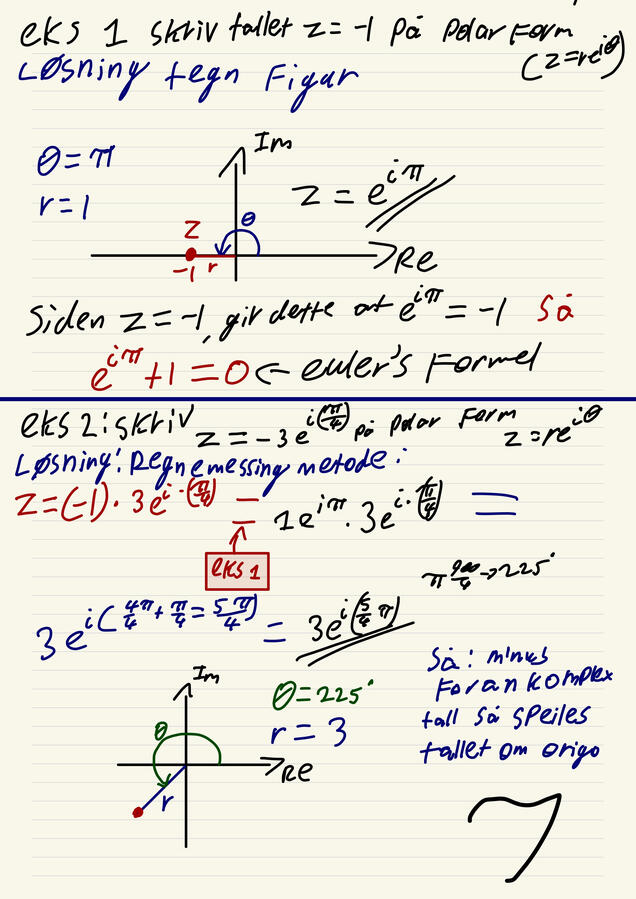 eks 1 skriv tallet z = -1 på polar form
(z=re^{iθ})
Løsning tegn Figur
θ = π
r = 1
Im
θ
z
-1 r
Re
z = e^{iπ}
Siden z = -1, gir dette at e^{iπ} = -1 så
e^{iπ} + 1 = 0 ← euler's Formel
eks 2: skriv z = -3e^{i(π/4)} på polar form z = re^{iθ}
Løsning: Regnemessing metode:
z = (-1) · 3e^{i·(π/4)} = 1e^{iπ} · 3e^{i·(π/4)} =
eks 1
→ 225°
3e^{i(4π/4 + π/4 = 5π/4)} = 3e^{i(5/4 π)}
Im
θ
r
Re
θ = 225°
r = 3
Så: minus
foran komplex
tall så speiles
tallet om origo
7